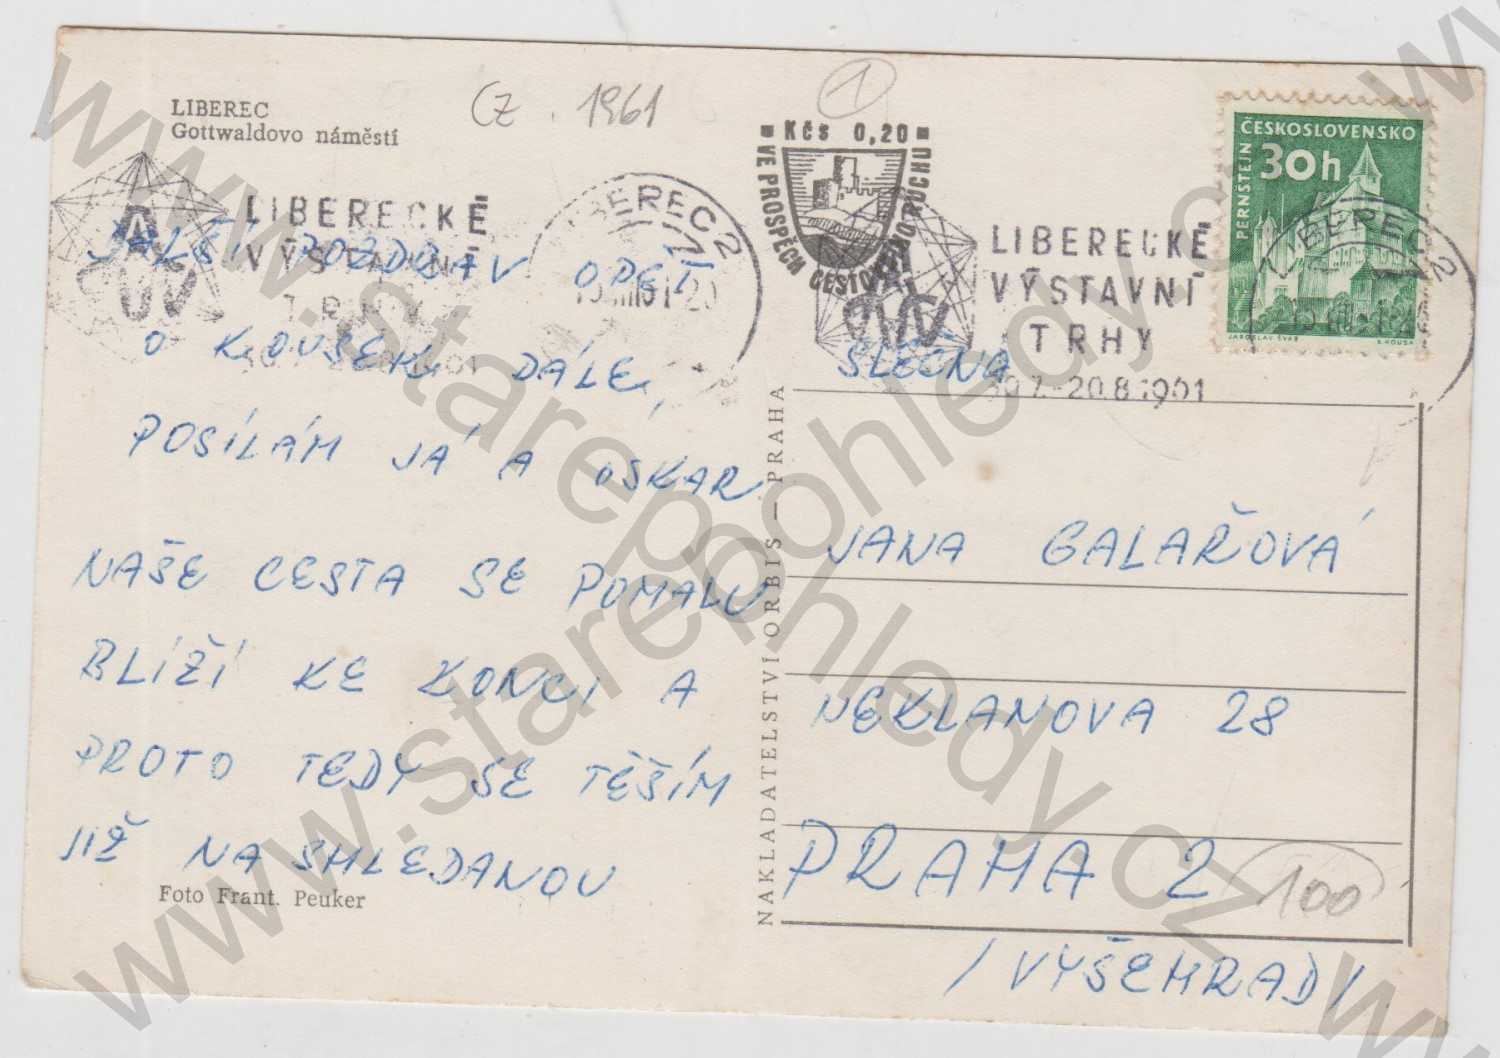 LIBEREC
Gottwaldovo náměstí
CZ. 1961
1
Kčs 0,20
VE PROSPĚCH CESTOVNÍHO RUCHU
ČESKOSLOVENSKO
30h
PERNŠTEJN
JAROSLAV ŠVÁB
LIBERECKÉ
VÝSTAVNÍ
TRHY
LIBEREC 2
LIBERECKÉ
VÝSTAVNÍ
TRHY
30.7.-20.8.1961
LIBEREC 2
DALŠÍ POZDRAV OPĚT
O KOUSEK DÁLE,
POSÍLÁM JÁ A OSKAR
NAŠE CESTA SE POMALU
BLÍŽÍ KE KONCI A
PROTO TEDY SE TĚŠÍM
JIŽ NA SHLEDANOU
Foto Frant. Peuker
NAKLADATELSTVÍ ORBIS — PRAHA
SLEČNA
JANA GALAŘOVÁ
NEKLANOVA 28
PRAHA 2
100
/VYŠEHRAD/
www.starepohledy.cz
www.starepohledy.cz